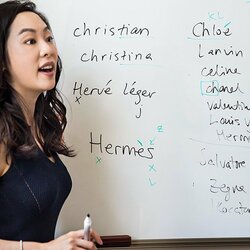 christian
christina
Hervé léger
x
j
Hermès
z
x
x
L
CL
Chloé
Lanvin
celine
chanel
valentin
Louis V
Herm
Salvatore
Zegna